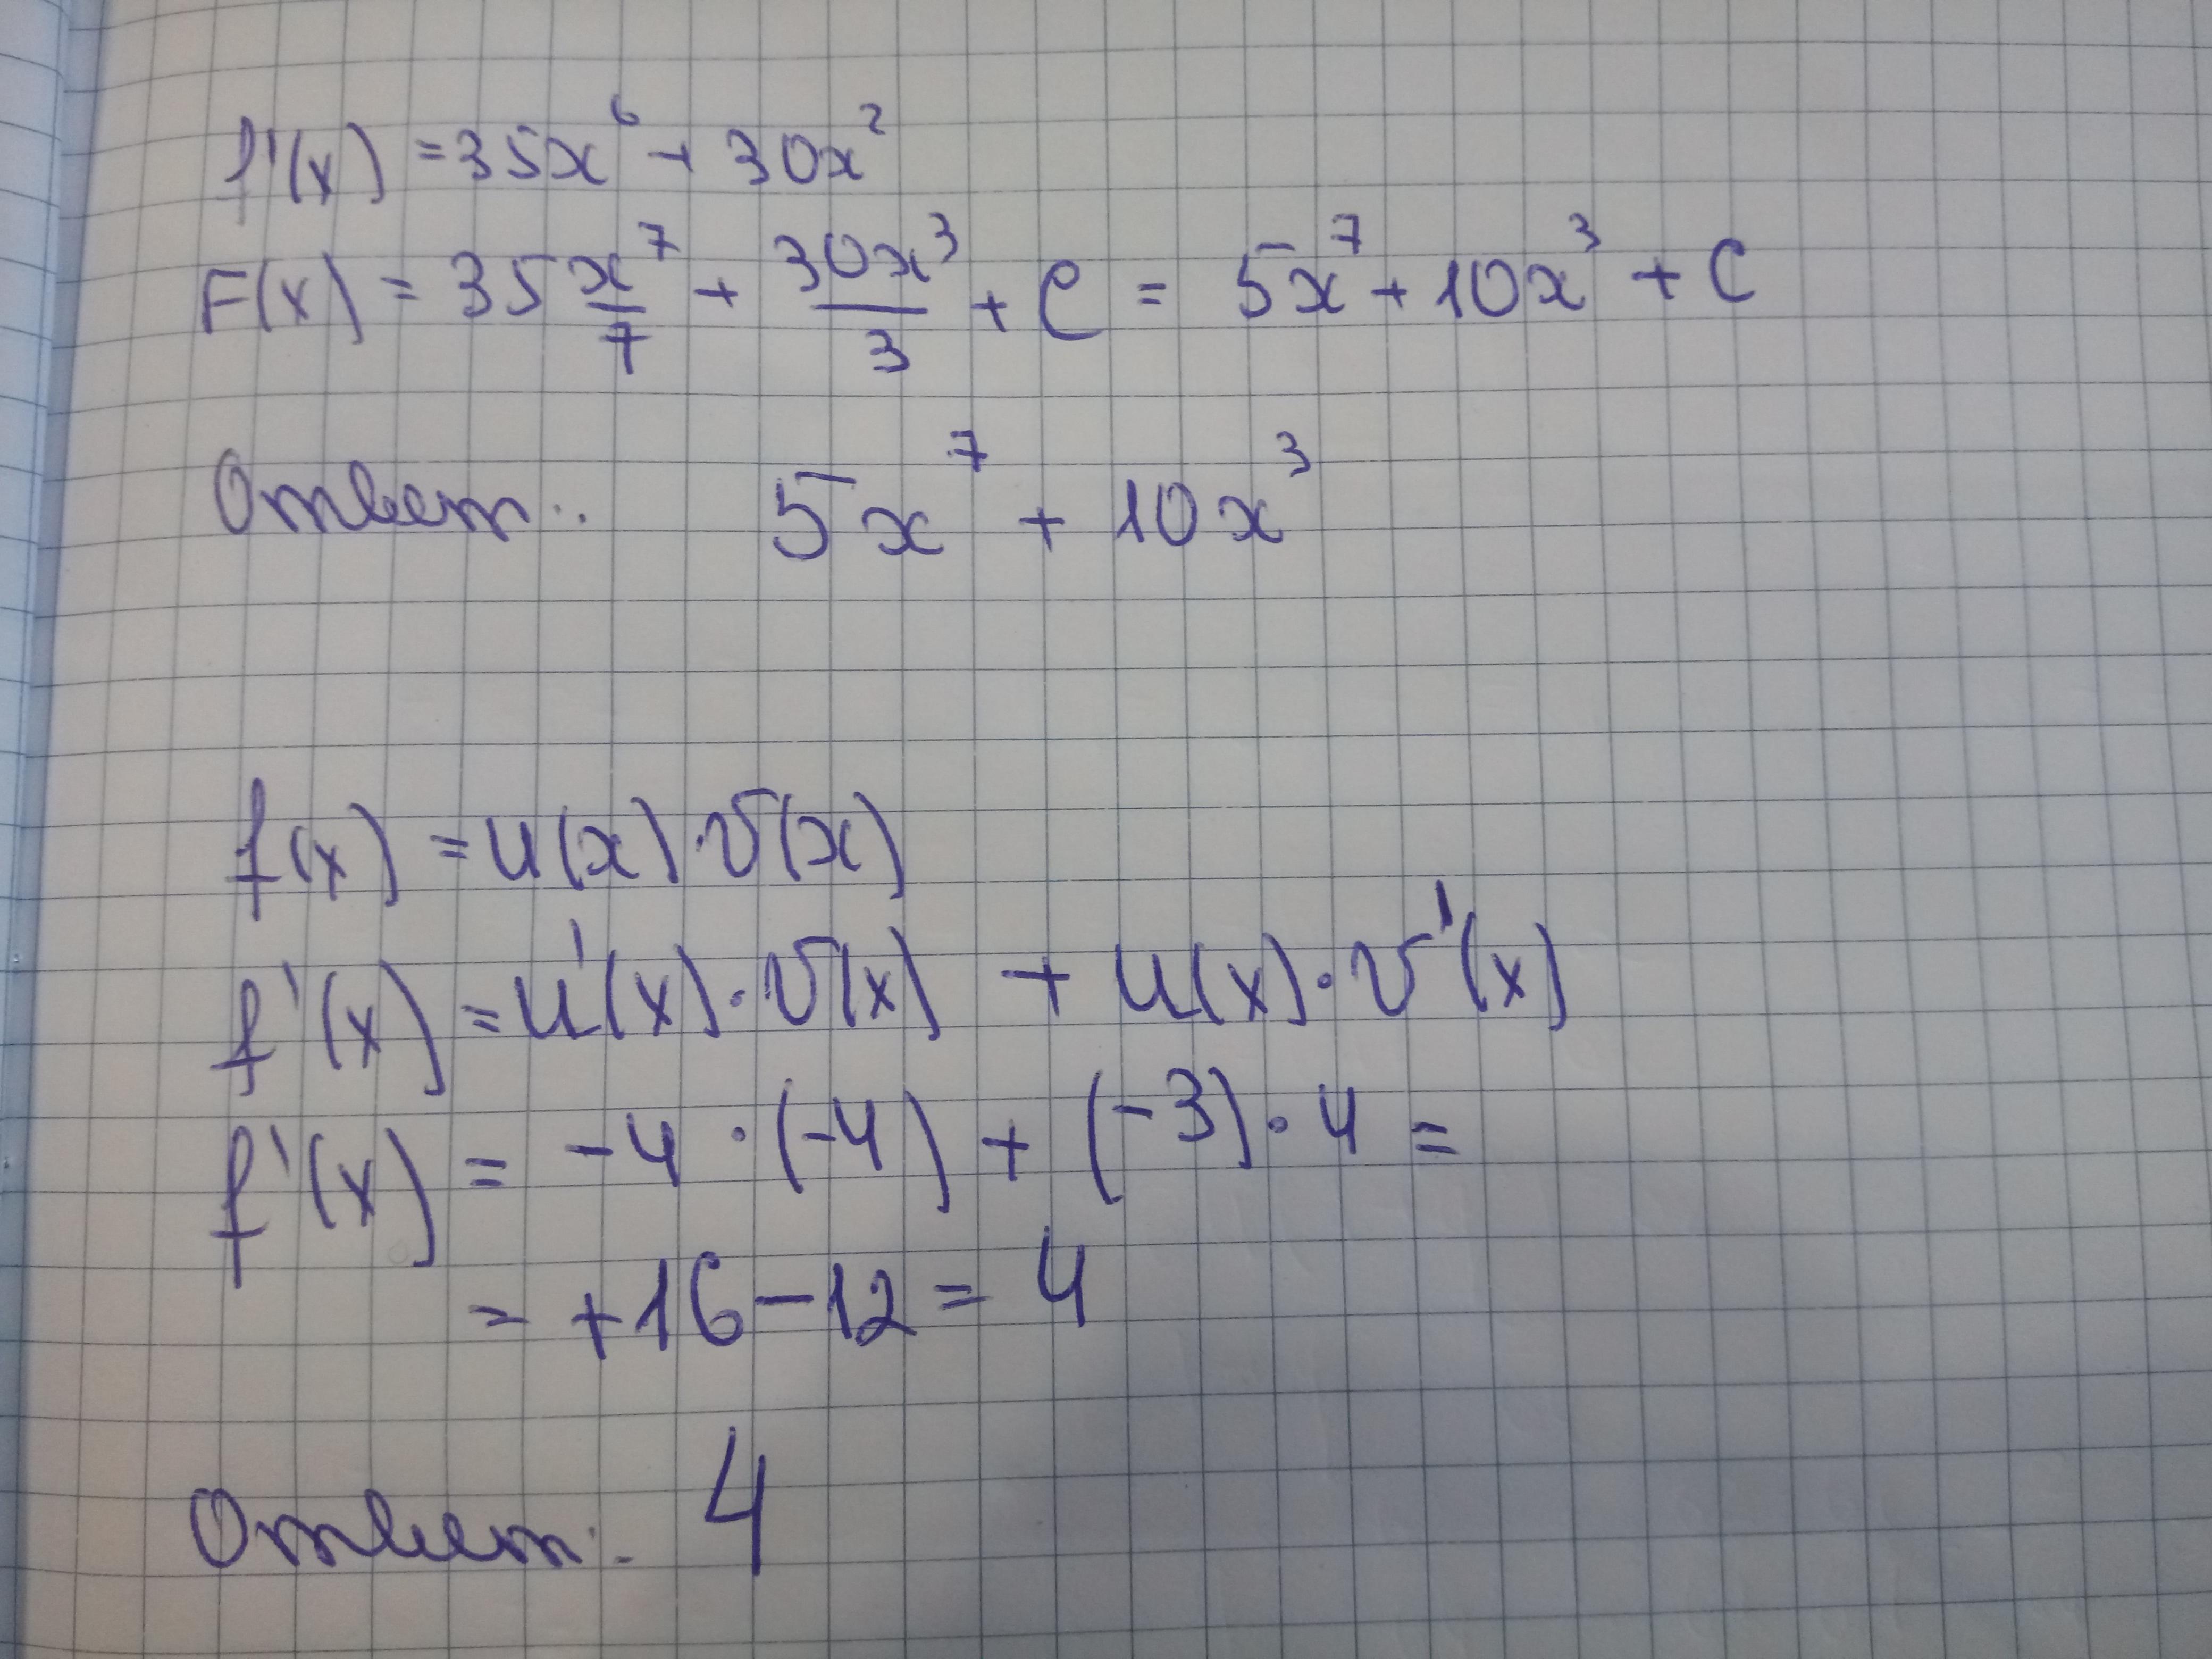 f'(x) = 35x⁶ + 30x²
F(x) = 35 x⁷/7 + 30x³/3 + C = 5x⁷ + 10x³ + C
Ответ: 5x⁷ + 10x³
f(x) = u(x) · v(x)
f'(x) = u'(x) · v(x) + u(x) · v'(x)
f'(x) = -4 · (-4) + (-3) · 4 =
= +16 - 12 = 4
Ответ: 4